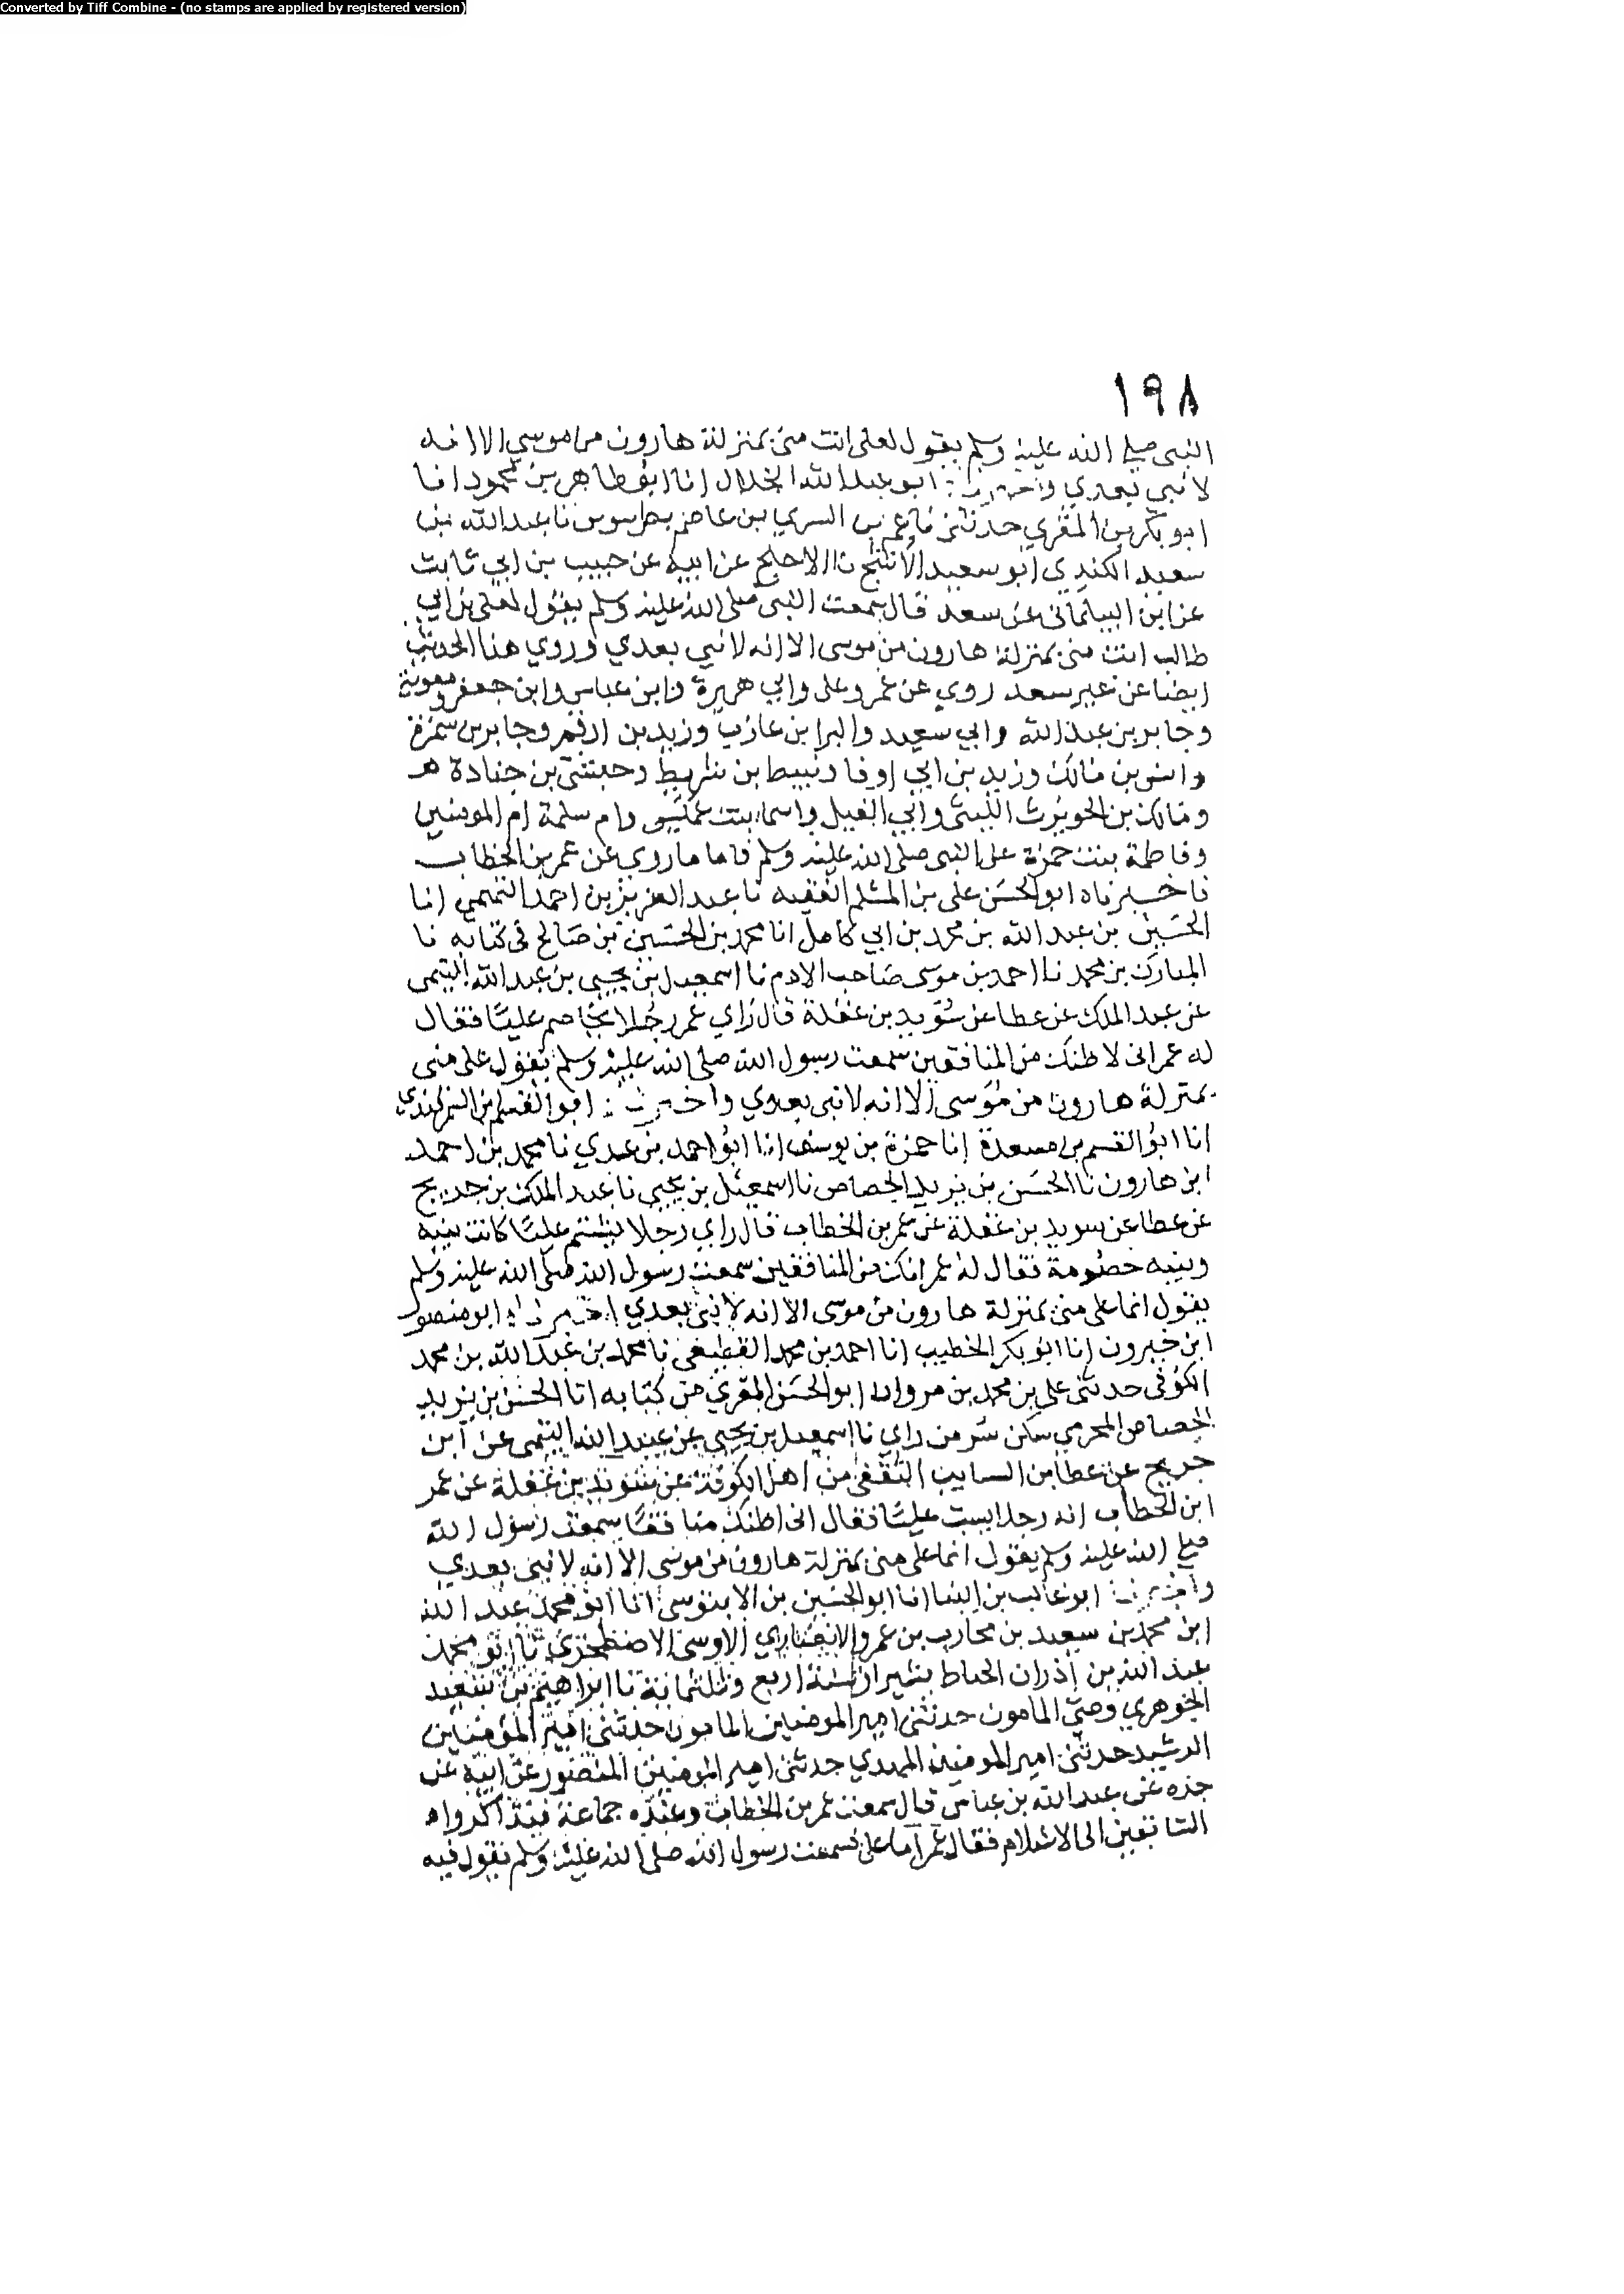 Converted by Tiff Combine - (no stamps are applied by registered version)
١٩٨
النبى صلى الله عليه وسلم يقول لعلى انت منى بمنزلة هارون من موسي الا انه
لا نبي بعدي واخبرنا ابو عبد الله الخلال انا ابو طاهر بن محمود انا
ابو بكر بن المقري حدثني السري بن عاصم بطرسوس نا عبد الله بن
سعيد الكندي ابو سعيد الاشج نا الاجلح عن ابيه عن حبيب بن ابي ثابت
عن ابن البيلمانى عن سعد قال سمعت النبى صلى الله عليه وسلم يقول لعلى بن ابي
طالب انت منى بمنزلة هارون من موسى الا انه لا نبي بعدي وروي هذا الحديث
ايضا عن غير سعد روي عن عمر وعلى وابي هريرة وابن عباس وابن جعفر ومعوية
وجابر بن عبد الله وابي سعيد والبرا بن عازب وزيد بن ارقم وجابر بن سمرة
وانس بن مالك وزيد بن ابي اوفا ونبيط بن شريط وحبشى بن جنادة
ومالك بن الحويرث الليثى وابي الفيل واسما بنت عميس وام سلمة ام المومنين
وفاطمة بنت حمزة عن النبى صلى الله عليه وسلم فاما ما روي عن عمر بن الخطاب
فاخبرناه ابو الحسن على بن المسلم الفقيه نا عبد العزيز بن احمد التميمي انا
الحسين بن عبد الله بن محمد بن ابي كامل انا محمد بن الحسين بن صالح فى كتابه نا
المبارك بن محمد نا احمد بن موسى صاحب الادم نا اسمعيل بن يحيى بن عبد الله التيمى
عن عبد الملك عن عطا عن سويد بن غفلة قال راي عمر رجلا يخاصم عليا فقال
له عمر انى لاظنك من المنافقين سمعت رسول الله صلى الله عليه وسلم يقول على منى
بمنزلة هارون من موسى الا انه لا نبى بعدي واخبرنا ابو القسم بن السمرقندي
انا ابو القسم بن مسعدة انا حمزة بن يوسف انا ابو احمد بن عدي نا محمد بن احمد
ابن هارون نا الحسن بن يزيد الجصاص نا اسمعيل بن يحيى نا عبد الملك بن جريج
عن عطا عن سويد بن غفلة عن عمر بن الخطاب قال راي رجلا يشتم عليا كانت بينه
وبينه خصومة فقال له عمر انك من المنافقين سمعت رسول الله صلى الله عليه وسلم
يقول انما على منى بمنزلة هارون من موسى الا انه لا نبى بعدي اخبرناه ابو منصور
ابن خيرون انا ابو بكر الخطيب انا احمد بن محمد القطيعى نا محمد بن عبد الله بن محمد
الكوفى حدثنى على بن محمد بن مروان ابو الحسن المقري من كتابه انا الحسن بن يزيد
الجصاص المخرمي سكن سر من راي نا اسمعيل بن يحيى عن عبيد الله التيمى عن ابن
جريج عن عطا بن السايب الثقفى من اهل الكوفة عن سويد بن غفلة عن عمر
ابن الخطاب انه رجلا يسب عليا فقال انى اظنك منافقا سمعت رسول الله
صلى الله عليه وسلم يقول انما على منى بمنزلة هارون من موسى الا انه لا نبى بعدي
واخبرنا ابو غالب بن البنا انا ابو الحسين بن الابنوسى انا ابو محمد عبد الله
ابن محمد بن سعيد بن محارب بن عمرو الانصاري الاوسى الاصطخري نا ابو محمد
عبد الله بن اذران الخياط بشيراز سنة اربع وثلثمائة نا ابراهيم بن سعيد
الجوهري وصى المامون حدثنى امير المومنين المامون حدثنى امير المومنين
الرشيد حدثنى امير المومنين المهدي حدثنى امير المومنين المنصور عن ابيه عن
جده عن عبد الله بن عباس قال سمعت عمر بن الخطاب وعنده جماعة فتذاكروا
السابقين الى الاسلام فقال عمر اما على فسمعت رسول الله صلى الله عليه وسلم يقول فيه